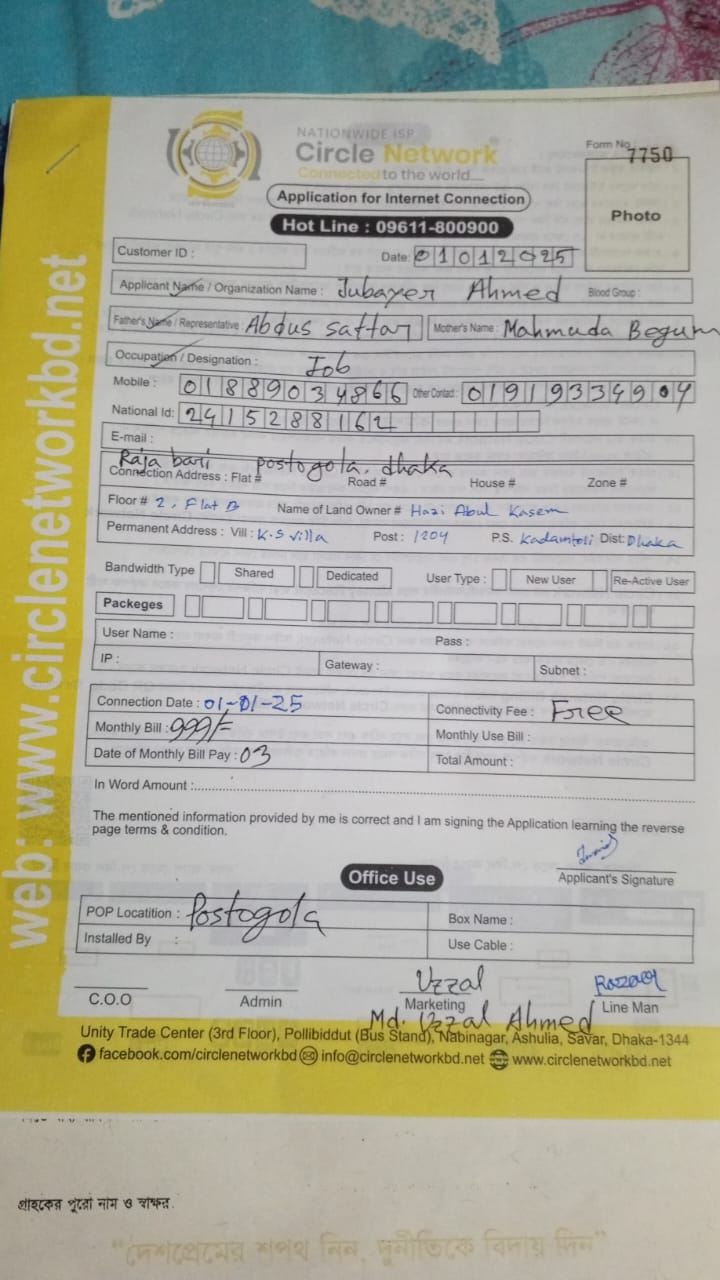 NATIONWIDE ISP
Circle Network
Connected to the world....
Form No. 7750
Photo
Application for Internet Connection
Hot Line : 09611-800900
Customer ID :
Date: 01012025
Applicant Name / Organization Name : Jubayer Ahmed Blood Group :
Father's Name / Representative : Abdus Sattar Mother's Name : Mahmuda Begum
Occupation / Designation : Job
Mobile : 01889034866 Other Contact : 01919334904
National Id: 2415288162
E-mail :
Raja bari postogola, dhaka
Connection Address : Flat # Road # House # Zone #
Floor # 2, Flat B Name of Land Owner # Hazi Abul Kasem
Permanent Address : Vill : K.S villa Post : 1204 P.S. Kadamtoli Dist: Dhaka
Bandwidth Type Shared Dedicated User Type : New User Re-Active User
Packeges
User Name : Pass :
IP : Gateway : Subnet :
Connection Date : 01-01-25 Connectivity Fee : Free
Monthly Bill : 999/= Monthly Use Bill :
Date of Monthly Bill Pay : 03 Total Amount :
In Word Amount :
The mentioned information provided by me is correct and I am signing the Application learning the reverse
page terms & condition.
Applicant's Signature
Office Use
POP Locatition : Postogola Box Name :
Installed By : Use Cable :
Uzzal
C.O.O Admin Marketing Line Man
Md. Uzzal Ahmed
Unity Trade Center (3rd Floor), Pollibiddut (Bus Stand), Nabinagar, Ashulia, Savar, Dhaka-1344
facebook.com/circlenetworkbd info@circlenetworkbd.net www.circlenetworkbd.net
web: www.circlenetworkbd.net
গ্রাহকের পুরো নাম ও স্বাক্ষর
“দেশপ্রেমের শপথ নিন, দুর্নীতিকে বিদায় দিন”